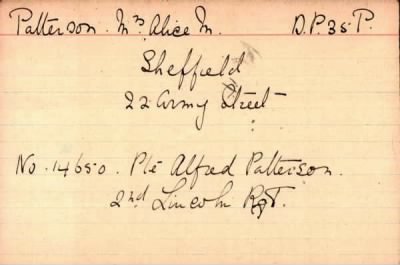 Patterson. Mrs Alice M. D.P. 35 P.
Sheffield
22 Army Street
No. 14650. Pte Alfred Patterson.
2nd Lincoln RgT.